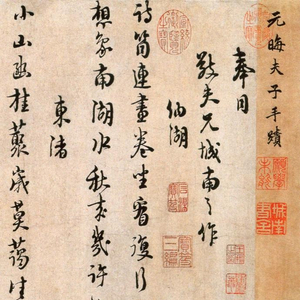 元晦夫子手蹟
奉同
敬夫兄城南之作
納湖
詩筒連畫卷坐看復行
想象南湖水秋來幾許
東渚
小山幽桂叢歲莫藹佳